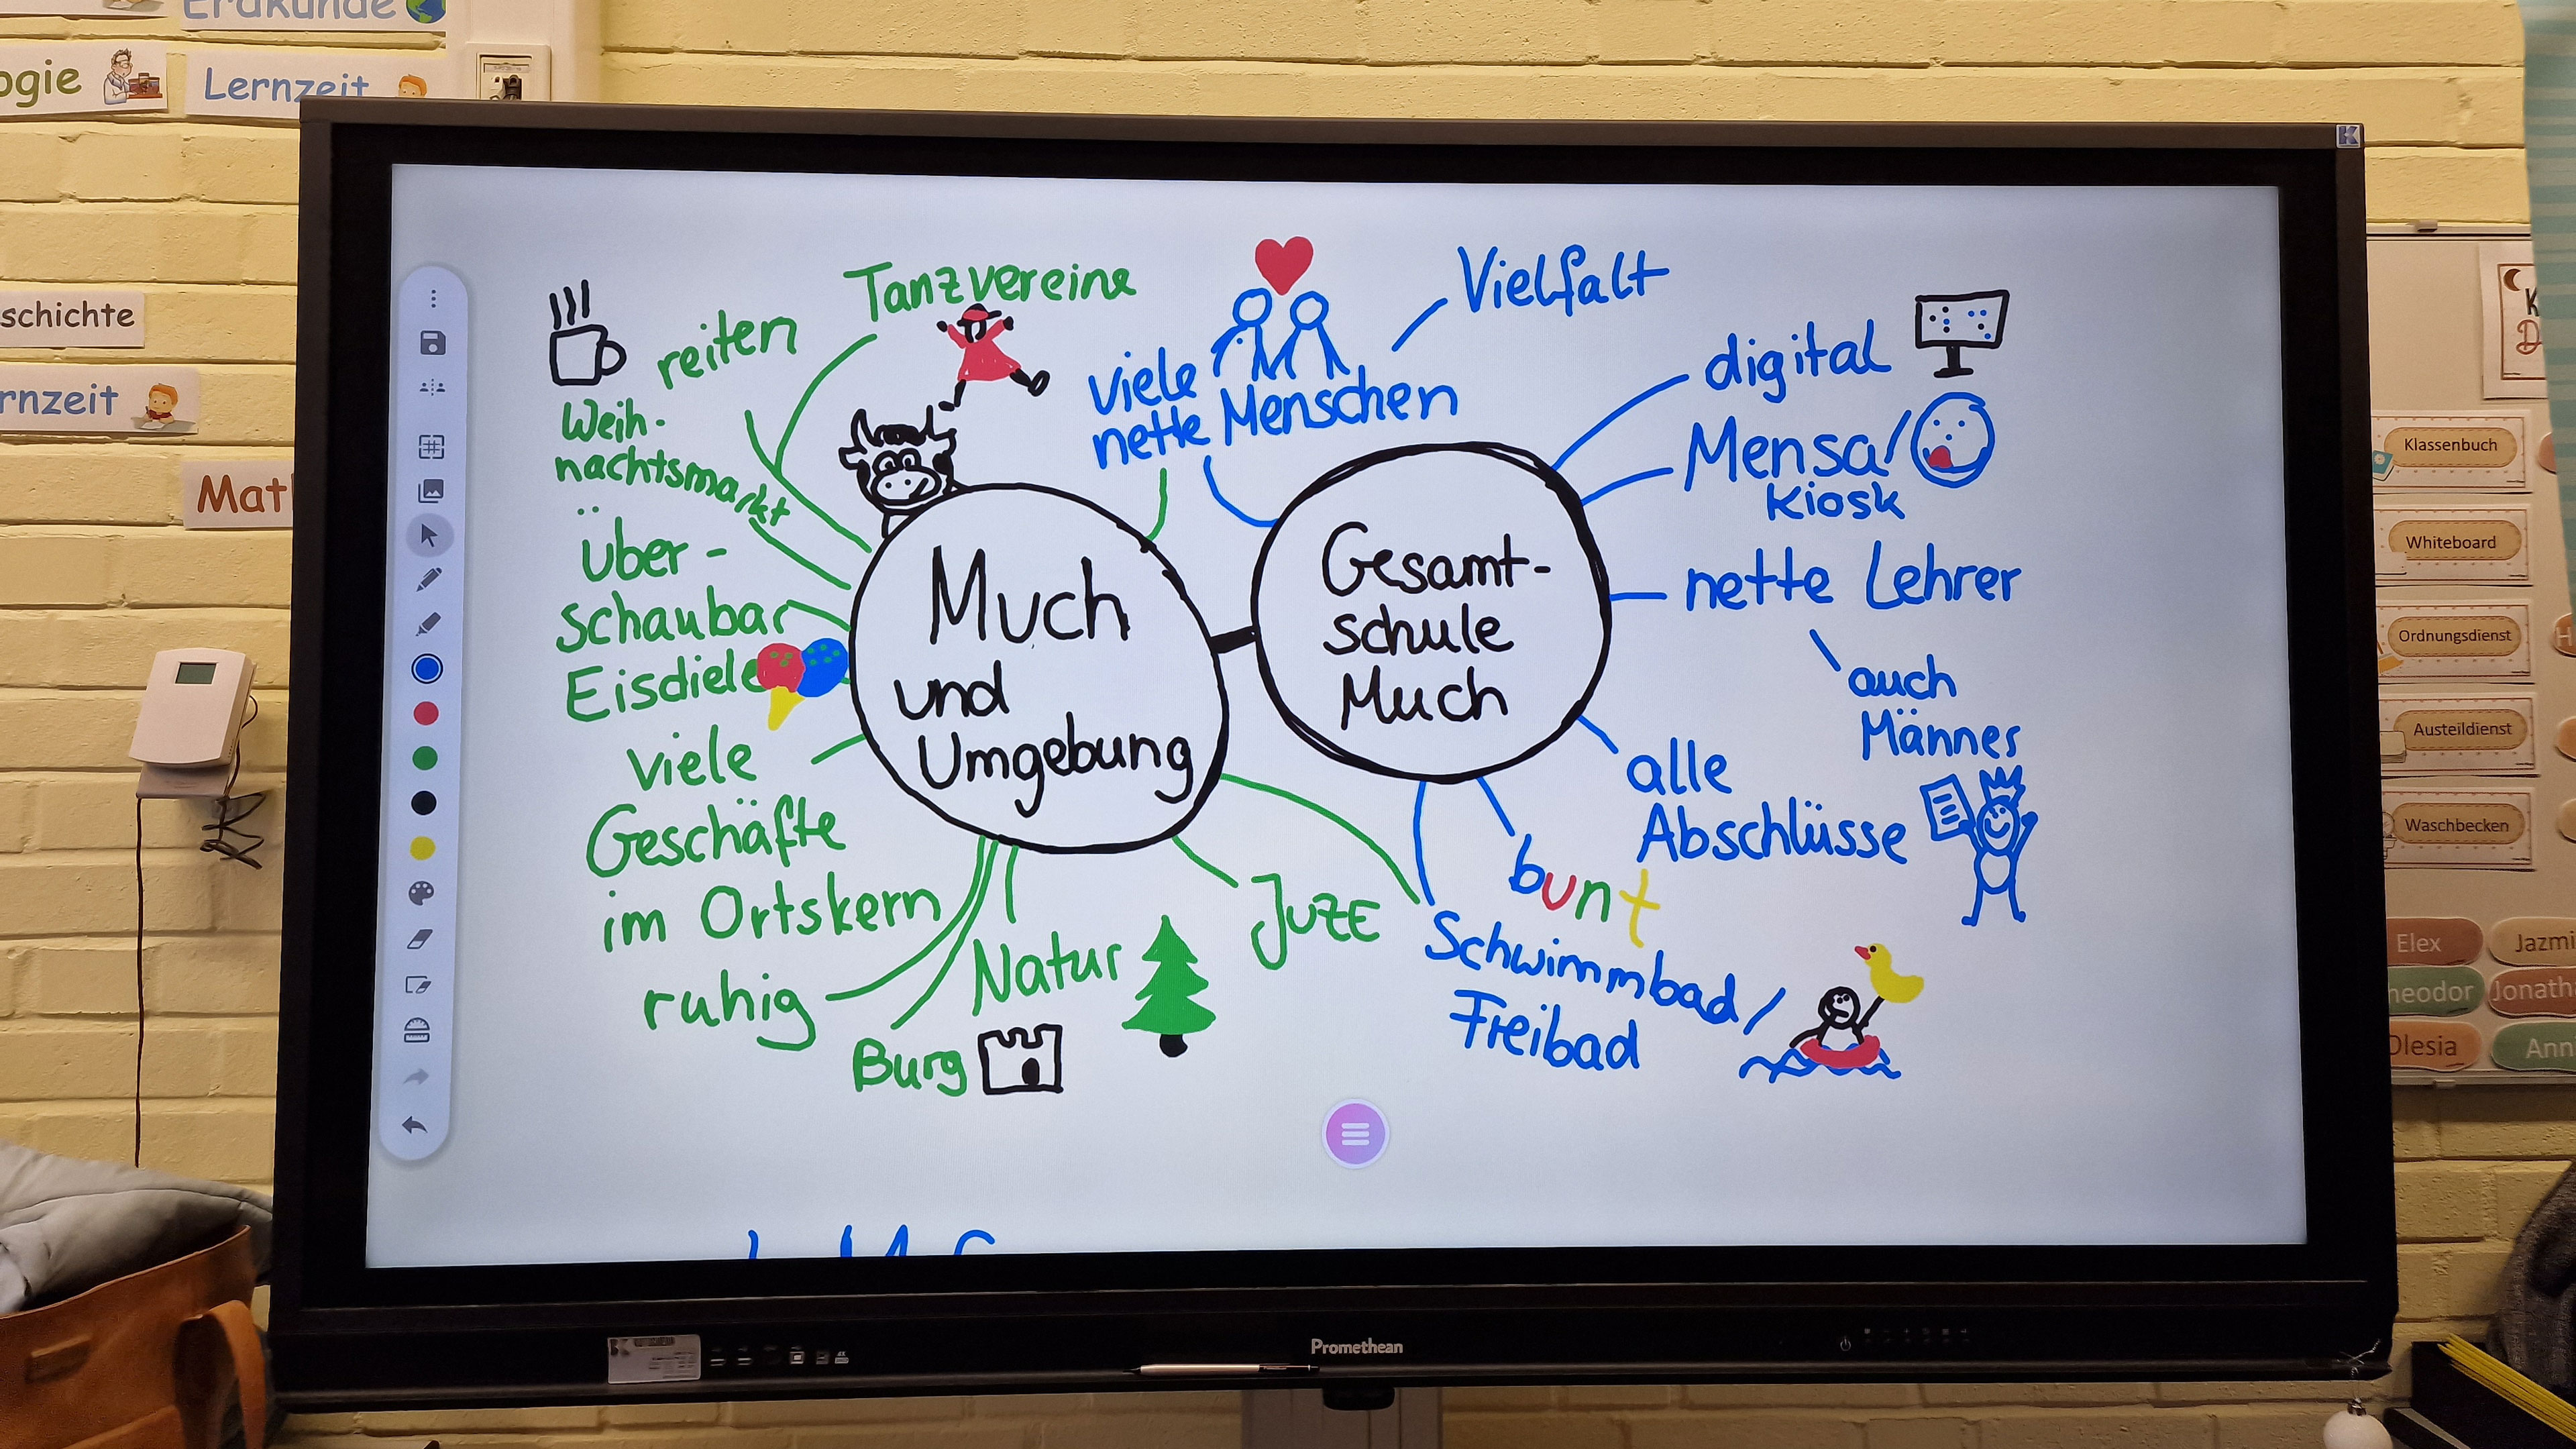 Erdkunde
ogie
Lernzeit
schichte
rnzeit
Mat
Tanzvereine
reiten
Weih-
nachtsmarkt
über-
schaubar
Eisdiele
viele
Geschäfte
im Ortskern
ruhig
Burg
Natur
JUZE
Much
und
Umgebung
viele
nette Menschen
Vielfalt
Gesamt-
schule
Much
digital
Mensa/
Kiosk
nette Lehrer
auch
Männer
alle
Abschlüsse
bunt
Schwimmbad/
Freibad
Promethean
K
Klassenbuch
Whiteboard
Ordnungsdienst
Austeildienst
Waschbecken
Elex
Jazmi
heodor
Jonath
Olesia
Ann